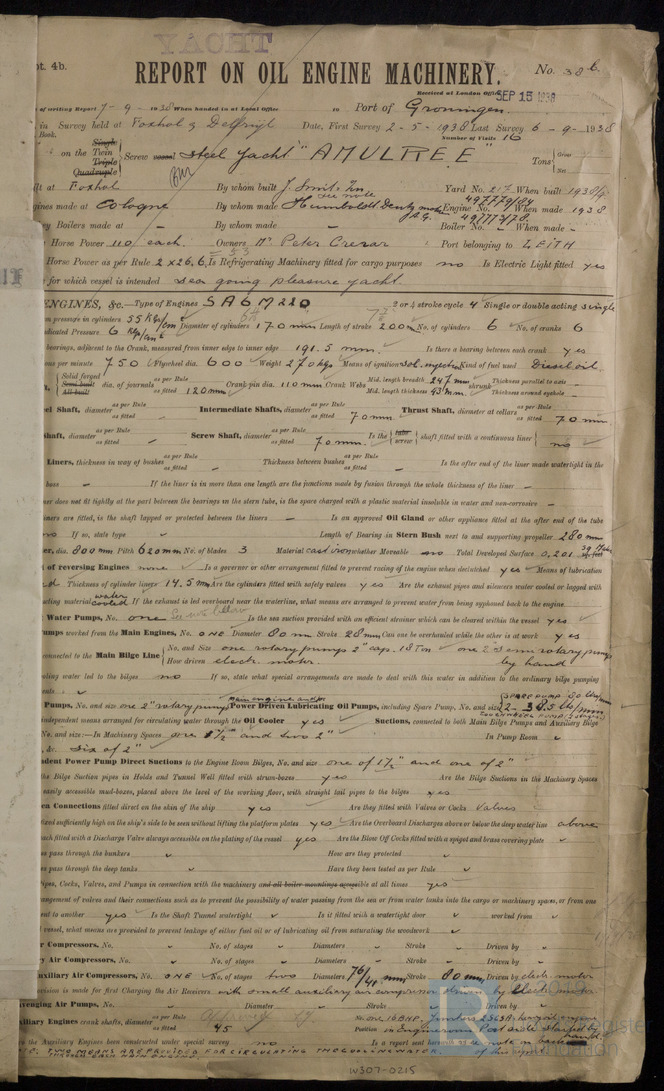 YACHT
pt. 4b.
REPORT ON OIL ENGINE MACHINERY.
No. 38 b.
Received at London Office SEP 15 1938
of writing Report 7 - 9 - 1938 When handed in at Local Office
to Port of Groningen.
in Survey held at Foxhol & Delfzijl Date, First Survey 2 - 5 - 1938 Last Survey 6 - 9 - 1938
Book. Number of Visits 16
on the Single Twin Triple Quadruple Screw vessel steel yacht "AMULREE" Tons Gross Net
lt at Foxhol By whom built J. Smit & Zn Yard No. 217 When built 1938/9
gines made at Cologne By whom made Humboldt Deutz motoren A.G. Engine No. 497779/84 497773/78 When made 1938
ey Boilers made at - By whom made - Boiler No. - When made -
Horse Power 110 each. Owners Mr Peter Crerar Port belonging to LEITH
Horse Power as per Rule 2 x 26.6 = 53 Is Refrigerating Machinery fitted for cargo purposes no Is Electric Light fitted yes
for which vessel is intended sea going pleasure yacht.
ENGINES, &c. — Type of Engines SA6M220 2 or 4 stroke cycle 4 Single or double acting single
pressure in cylinders 55 kg/cm² Diameter of cylinders 170 mm Length of stroke 200 m No. of cylinders 6 No. of cranks 6
dicated Pressure 6 kg/cm²
bearings, adjacent to the Crank, measured from inner edge to inner edge 191.5 mm. Is there a bearing between each crank yes
per minute 750 Flywheel dia. 600 Weight 270 kgs Means of ignition sol. injected Kind of fuel used Diesel oil.
Solid forged Semi built All built dia. of journals as per Rule as fitted 120 mm Crank pin dia. 110 mm Crank Webs Mid. length breadth 247 mm Mid. length thickness 43 mm shrunk Thickness parallel to axis - Thickness around eyehole -
eel Shaft, diameter as per Rule as fitted Intermediate Shafts, diameter as per Rule as fitted 70 mm. Thrust Shaft, diameter at collars as per Rule as fitted 70 mm.
shaft, diameter as per Rule as fitted - Screw Shaft, diameter as per Rule as fitted 70 mm. Is the tube screw shaft fitted with a continuous liner no
Liners, thickness in way of bushes as per Rule as fitted - Thickness between bushes as per Rule as fitted - Is the after end of the liner made watertight in the
boss - If the liner is in more than one length are the junctions made by fusion through the whole thickness of the liner -
er does not fit tightly at the part between the bearings in the stern tube, is the space charged with a plastic material insoluble in water and non-corrosive -
ners are fitted, is the shaft lapped or protected between the liners - Is an approved Oil Gland or other appliance fitted at the after end of the tube
no If so, state type Length of Bearing in Stern Bush next to and supporting propeller 280 mm
er, dia. 800 mm Pitch 620 mm No. of blades 3 Material cast iron whether Moveable no Total Developed Surface 0.201 sq. feet
of reversing Engines none Is a governor or other arrangement fitted to prevent racing of the engine when declutched yes Means of lubrication
Thickness of cylinder liners 14.5 mm Are the cylinders fitted with safety valves yes Are the exhaust pipes and silencers water cooled or lagged with
ting material water cooled If the exhaust is led overboard near the waterline, what means are arranged to prevent water from being syphoned back to the engine
Water Pumps, No. one See note below Is the sea suction provided with an efficient strainer which can be cleared within the vessel yes
umps worked from the Main Engines, No. ONE Diameter 80 mm Stroke 28 mm Can one be overhauled while the other is at work yes
connected to the Main Bilge Line No. and Size one rotary pumps 2" cap. 18 Ton
How driven electr. motor. by hand
ling water led to the bilges no If so, state what special arrangements are made to deal with this water in addition to the ordinary bilge pumping
Pumps, No. and size one 2" rotary pump Power Driven Lubricating Oil Pumps, including Spare Pump, No. and size 2 - 38.5
independent means arranged for circulating water through the Oil Cooler yes Suctions, connected to both Main Bilge Pumps and Auxiliary Bilge
No. and size:—In Machinery Spaces one 1½" and two 2" In Pump Room
&c. six of 2"
dent Power Pump Direct Suctions to the Engine Room Bilges, No. and size one of 1½" and one of 2"
the Bilge Suction pipes in Holds and Tunnel Well fitted with strum-boxes yes Are the Bilge Suctions in the Machinery Spaces
easily accessible mud-boxes, placed above the level of the working floor, with straight tail pipes to the bilges yes
ea Connections fitted direct on the skin of the ship yes Are they fitted with Valves or Cocks Valves
and sufficiently high on the ship's side to be seen without lifting the platform plates yes Are the Overboard Discharges above or below the deep water line above
each fitted with a Discharge Valve always accessible on the plating of the vessel yes Are the Blow Off Cocks fitted with a spigot and brass covering plate
es pass through the bunkers How are they protected
es pass through the deep tanks Have they been tested as per Rule
Pipes, Cocks, Valves, and Pumps in connection with the machinery and all boiler mountings accessible at all times yes
angement of valves and their connections such as to prevent the possibility of water passing from the sea or from water tanks into the cargo or machinery spaces, or from one
ent to another yes Is the Shaft Tunnel watertight Is it fitted with a watertight door worked from
vessel, what means are provided to prevent leakage of either fuel oil or of lubricating oil from saturating the woodwork
r Compressors, No. No. of stages Diameters Stroke Driven by
ry Air Compressors, No. No. of stages Diameters Stroke Driven by
uxiliary Air Compressors, No. ONE No. of stages two Diameters 76/41 mm Stroke 80 mm. Driven by electr. motor
ovision is made for first Charging the Air Receivers with small auxiliary air compressor driven by electr. motor
enging Air Pumps, No. Diameter Stroke
xiliary Engines crank shafts, diameter as per Rule as fitted 45 No. one 16 BHP
Position in Engineroom Port side started by hand.
the Auxiliary Engines been constructed under special survey no Is a report sent herewith
NOTE. TWO MEANS ARE PROVIDED FOR CIRCULATING THE COOLING WATER
THROUGH EACH MAIN ENGINE.
W307-0215